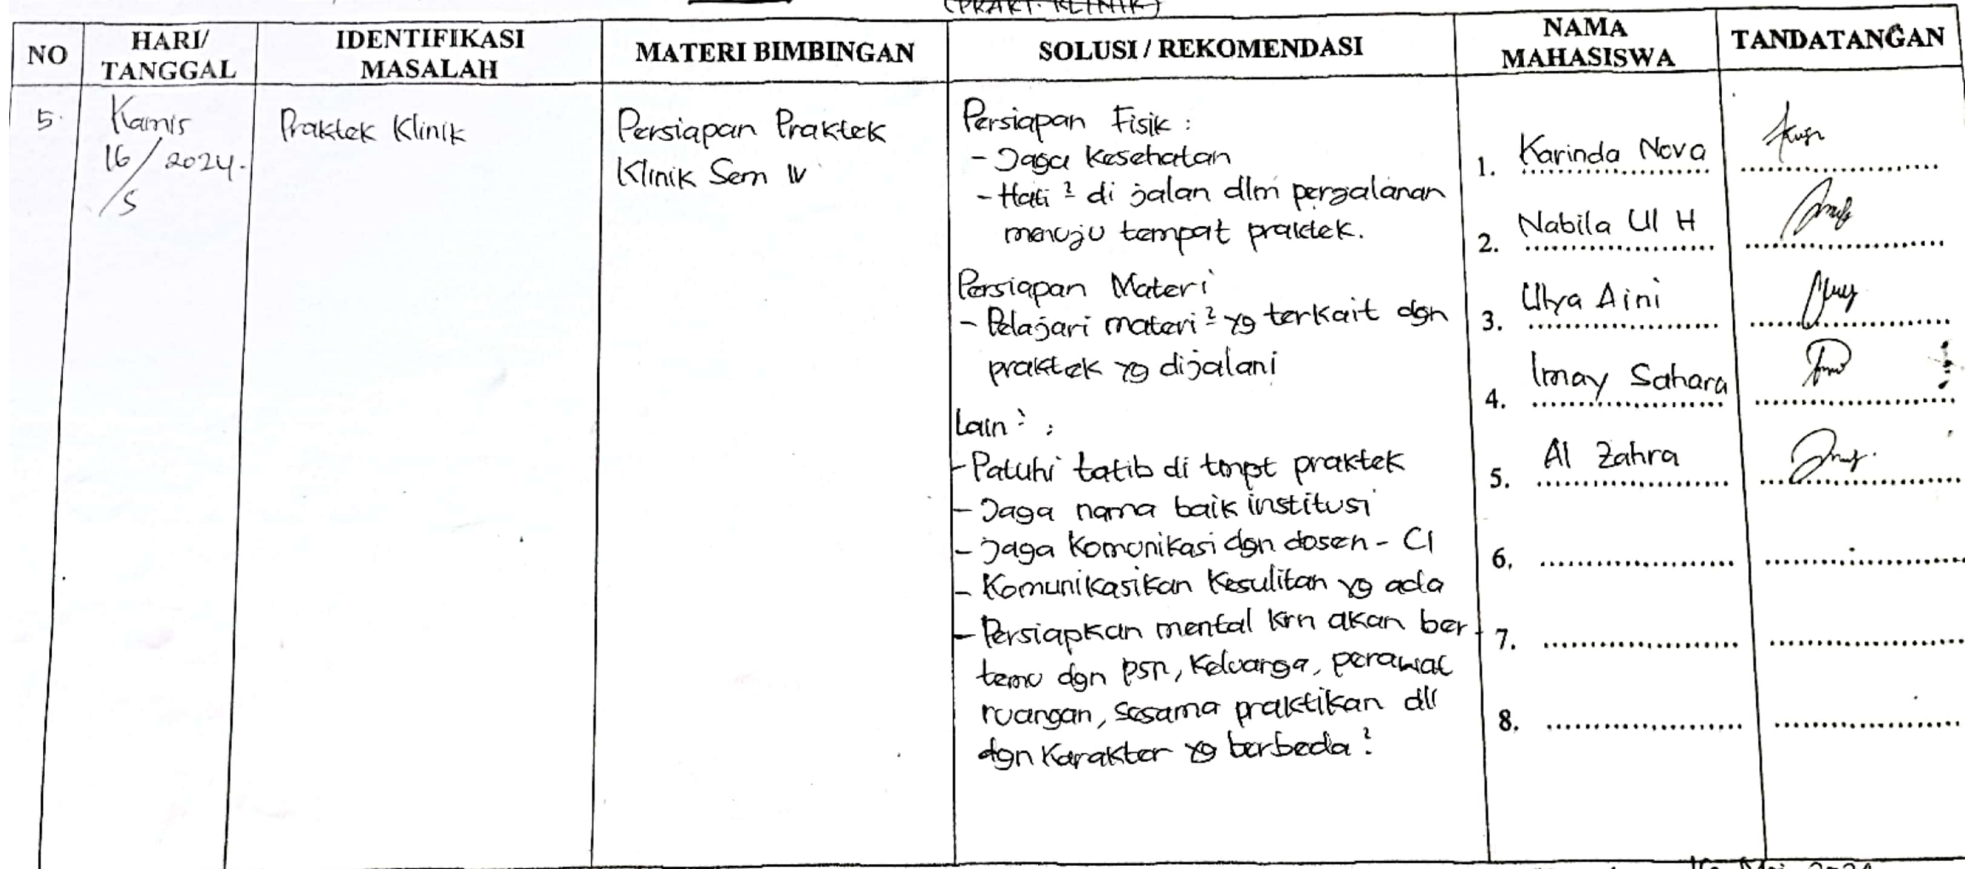 (PRAKT. KLINIK)
NO
HARI/
TANGGAL
IDENTIFIKASI
MASALAH
MATERI BIMBINGAN
SOLUSI / REKOMENDASI
NAMA
MAHASISWA
TANDATANGAN
5.
Kamis
16/2024.
/5
Praktek Klinik
Persiapan Praktek
Klinik Sem IV
Persiapan Fisik :
- Jaga Kesehatan
- Hati ² di jalan dlm perjalanan
menuju tempat praktek.
Persiapan Materi
- Pelajari materi ² yg terkait dgn
praktek yg dijalani
Lain ² :
- Patuhi tatib di tmpt praktek
- Jaga nama baik institusi
- Jaga Komunikasi dgn dosen - CI
- Komunikasikan Kesulitan yg ada
- Persiapkan mental krn akan ber
temu dgn psn, Keluarga, perawat
ruangan, sesama praktikan dll
dgn Karakter yg berbeda ².
1. Karinda Nova
2. Nabila Ul H
3. Ulya Aini
4. Imay Sahara
5. Al Zahra
6.
7.
8.